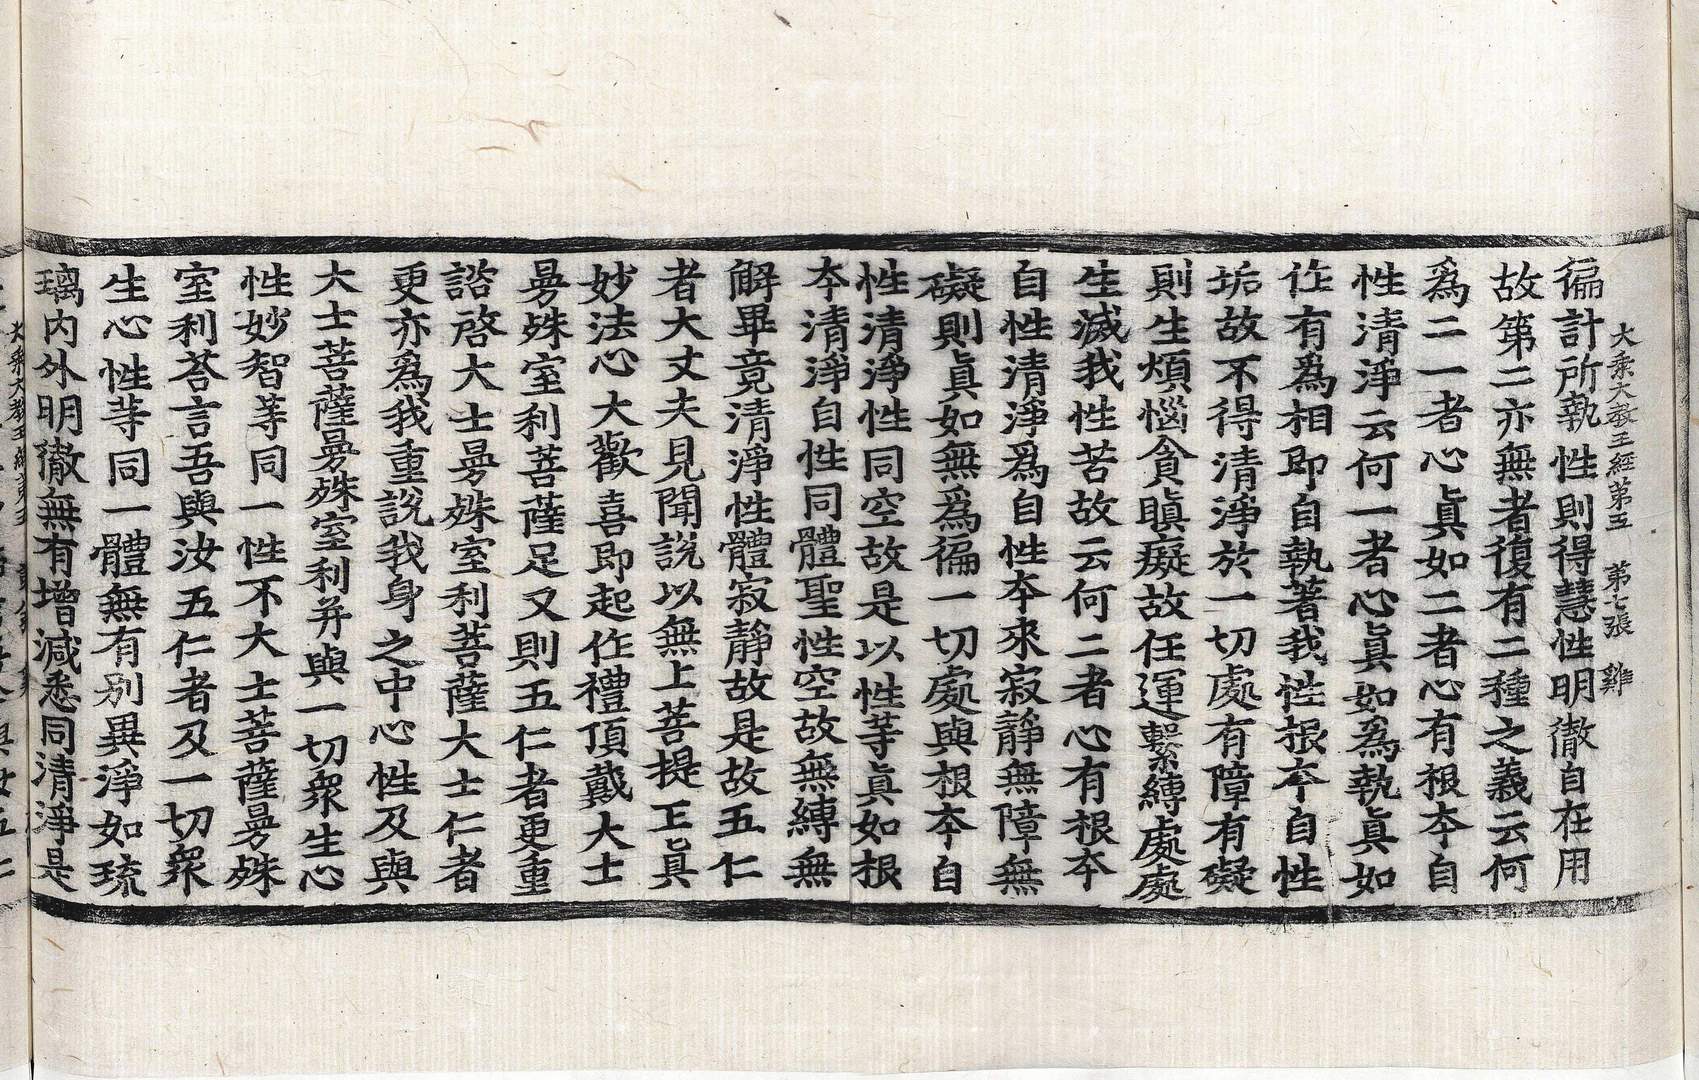 大乘大教王經第五　第七張　雞
徧計所執性則得慧性明徹自在用
故第二亦無者復有二種之義云何
爲二一者心眞如二者心有根本自
性清淨云何一者心眞如爲執眞如
作有爲相即自執著我性根本自性
垢故不得清淨於一切處有障有礙
則生煩惱貪瞋癡故任運繫縛處處
生滅我性苦故云何二者心有根本
自性清淨爲自性本來寂靜無障無
礙則眞如無爲徧一切處與根本自
性清淨性同空故是以性等眞如根
本清淨自性同體聖性空故無縛無
解畢竟清淨性體寂靜故是故五仁
者大丈夫見聞說以無上菩提正眞
妙法心大歡喜即起作禮頂戴大士
曼殊室利菩薩足又則五仁者更重
諮啓大士曼殊室利菩薩大士仁者
更亦爲我重說我身之中心性及與
大士菩薩曼殊室利并與一切衆生心
性妙智等同一性不大士菩薩曼殊
室利荅言吾與汝五仁者及一切衆
生心性等同一體無有別異淨如琉
璃內外明徹無有增減悉同清淨是